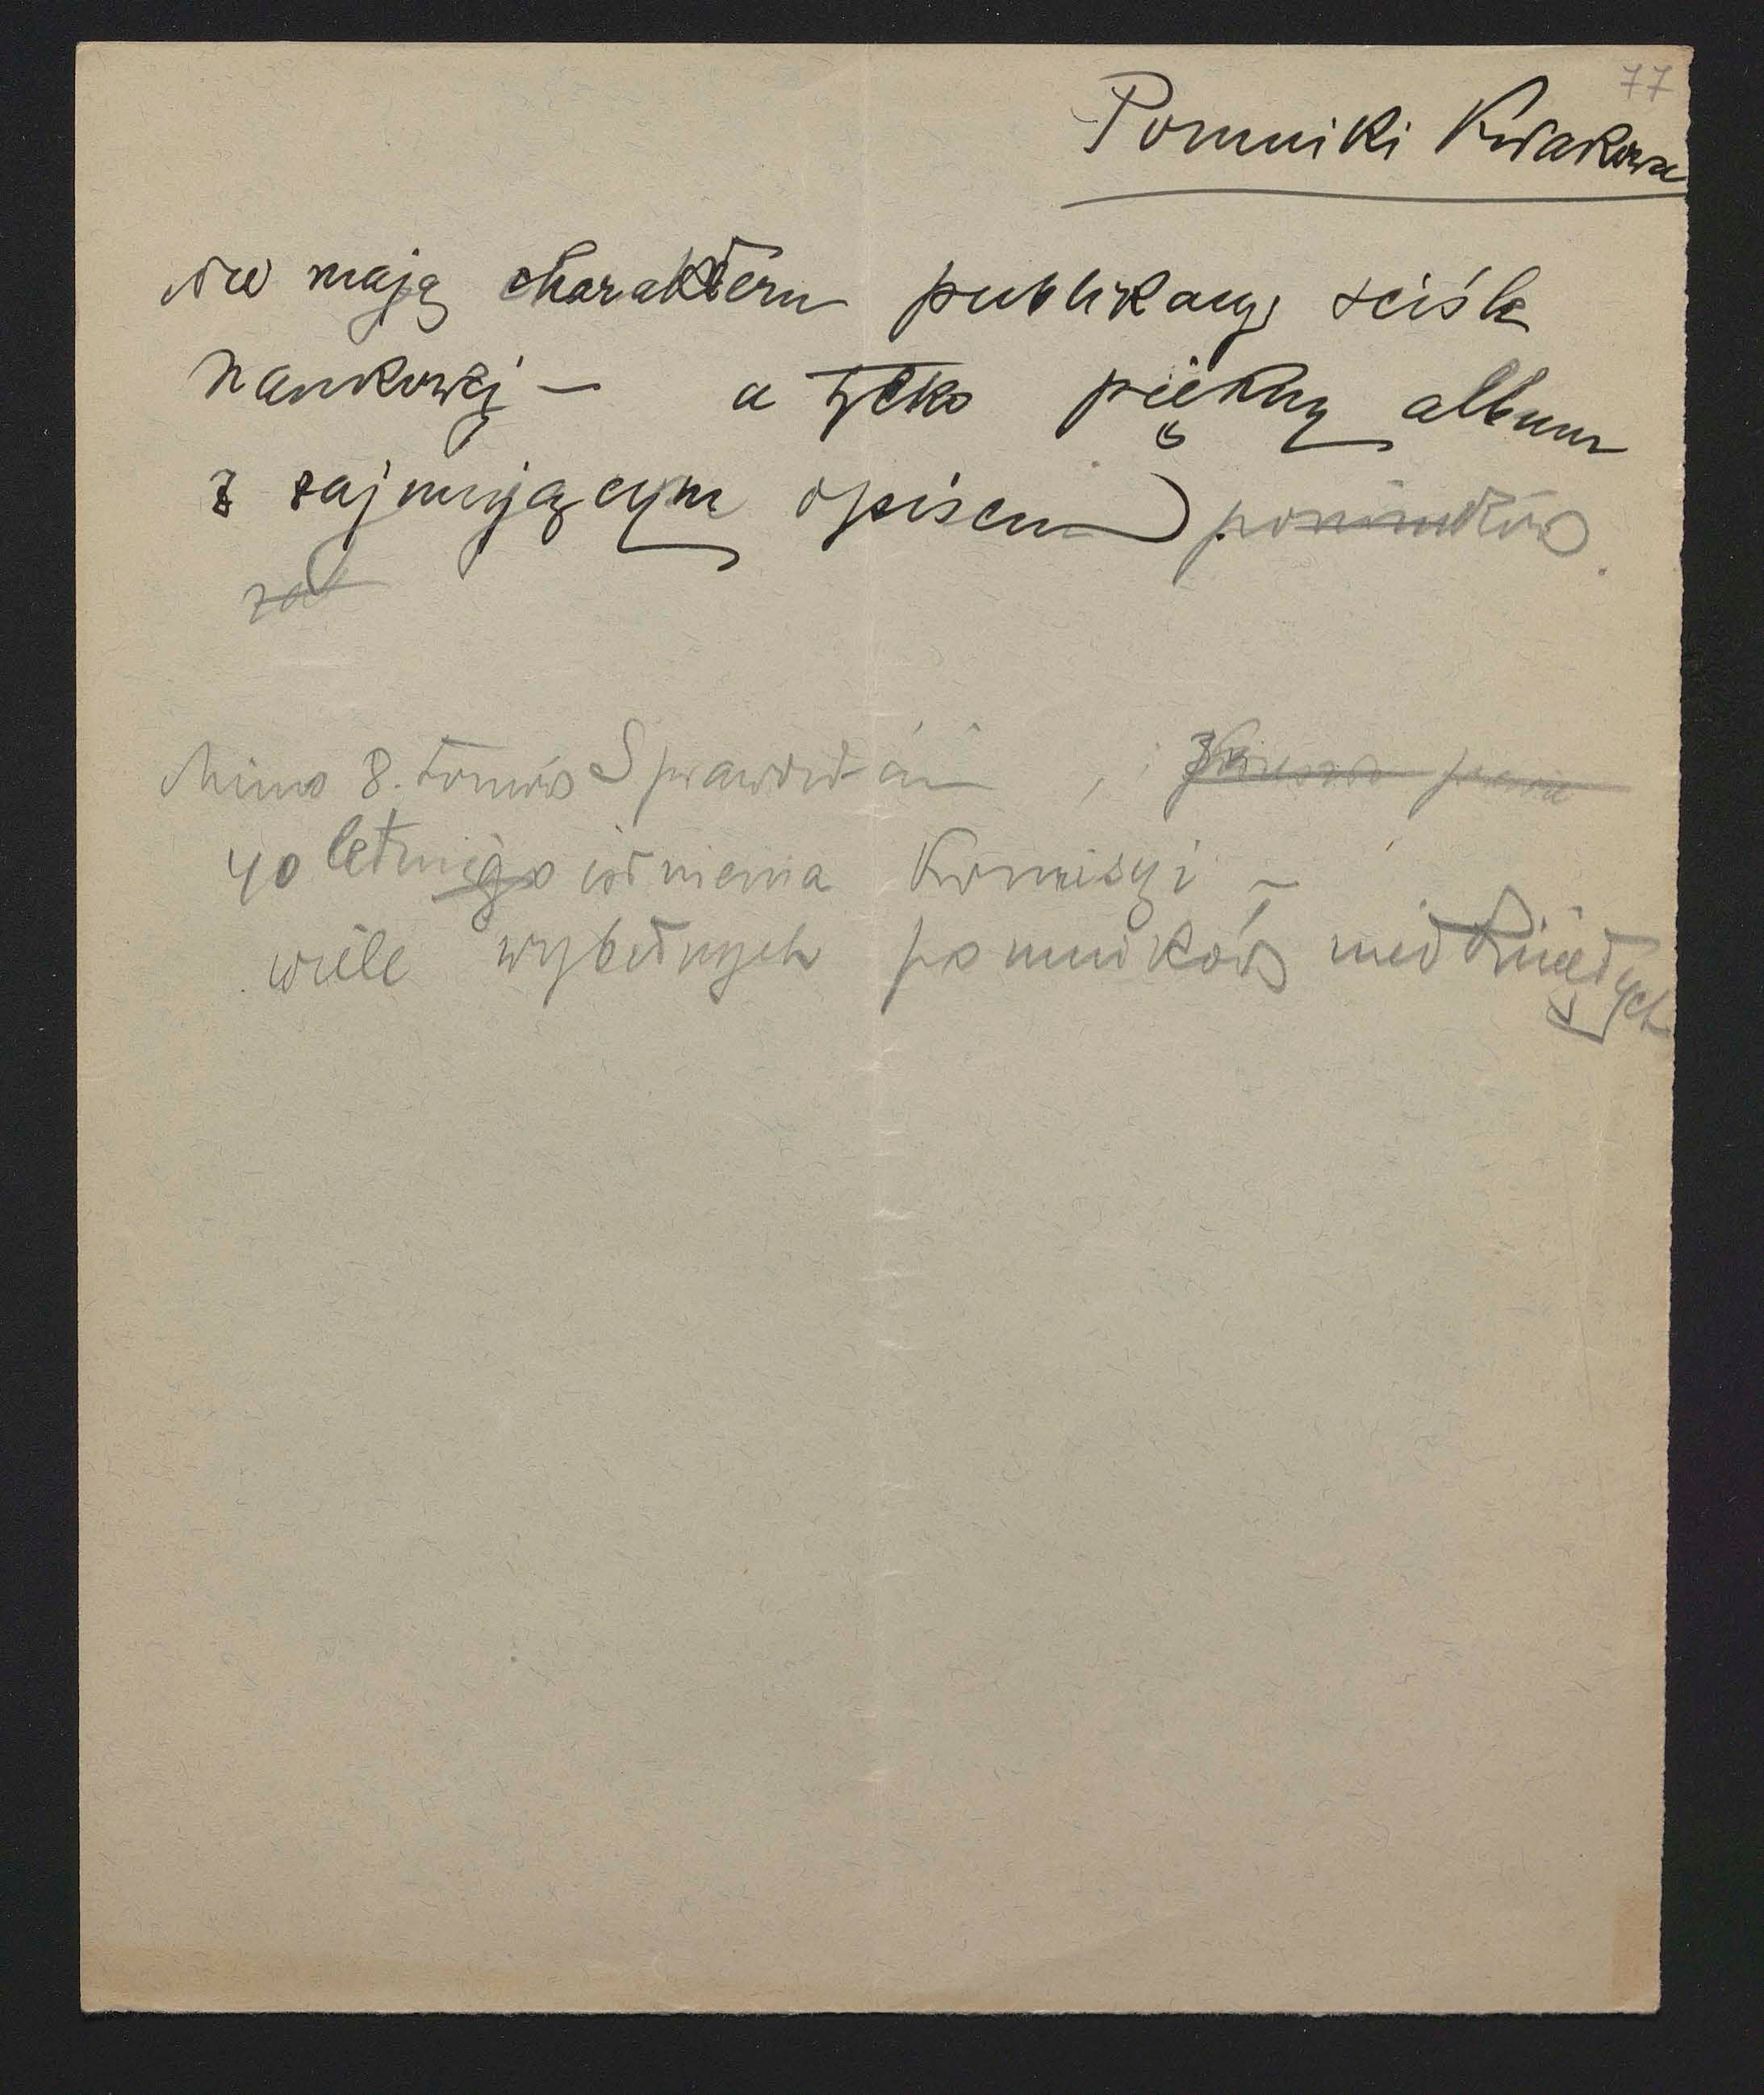 77
Pomniki Krakowa
nie mają charakteru publikacyj ściśle
naukowej — a tylko piękny album
z zajmującym opisem) pomników.
za
Mimo 8. tomów Sprawozdań,
40 letniego istnienia Komisyi –
wiele wybitnych pomników nietkniętych